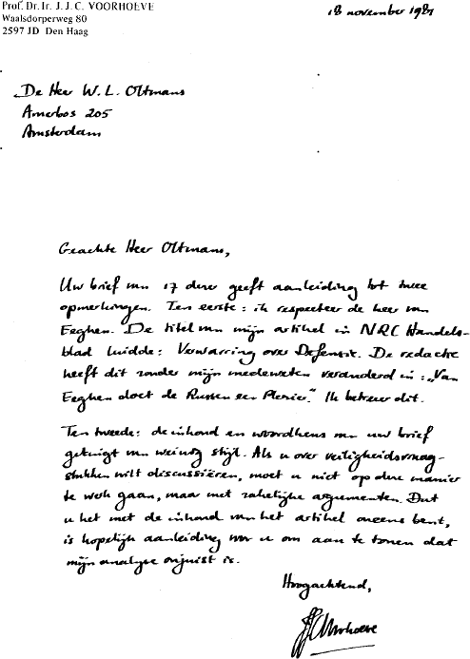 Prof. Dr. Ir. J. J. C. VOORHOEVE
Waalsdorperweg 80
2597 JD Den Haag
18 november 1981
De Heer W. L. Oltmans
Amerbos 205
Amsterdam
Geachte Heer Oltmans,
Uw brief van 17 dezer geeft aanleiding tot twee
opmerkingen. Ten eerste: ik respecteer de heer van
Eeghen. De titel van mijn artikel in NRC Handels-
blad luidde: Verwarring over Defensie. De redactie
heeft dit zonder mijn medeweten veranderd in: „Van
Eeghen doet de Russen een Plezier." Ik betreur dit.
Ten tweede: de inhoud en woordkeus van uw brief
getuigt van weinig stijl. Als u over veiligheidsvraag-
stukken wilt discussiëren, moet u niet op deze manier
te werk gaan, maar met zakelijke argumenten. Dat
u het met de inhoud van het artikel oneens bent,
is hopelijk aanleiding voor u om aan te tonen dat
mijn analyse onjuist is.
Hoogachtend,
JJCVoorhoeve